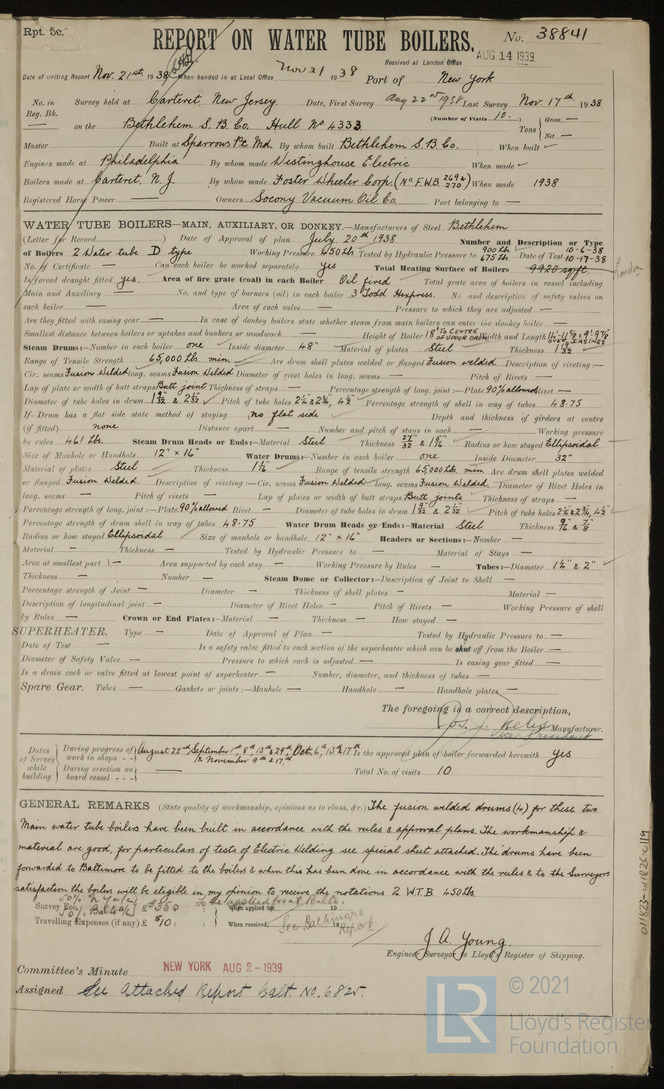 Rpt. 5c.
REPORT ON WATER TUBE BOILERS.
No. 38841
Received at London Office AUG 14 1939
Date of writing Report Nov. 21st 1938 When handed in at Local Office Nov 21 1938 Port of New York
No. in Reg. Bk. Survey held at Carteret, New Jersey. Date, First Survey Aug 22nd 1938 Last Survey Nov. 17th 1938
(Number of Visits 10.)
on the Bethlehem S.B. Co. Hull No 4333 Tons Gross — Net —
Master Built at Sparrows Pt. Md. By whom built Bethlehem S.B. Co. When built
Engines made at Philadelphia By whom made Westinghouse Electric When made
Boilers made at Carteret, N.J. By whom made Foster Wheeler Corp. (No F.W.B. 269 & 270) When made 1938
Registered Horse Power Owners Socony Vacuum Oil Co. Port belonging to —
WATER TUBE BOILERS—MAIN, AUXILIARY, OR DONKEY.—Manufacturers of Steel Bethlehem
(Letter for Record) Date of Approval of plan July 20th 1938 Number and Description or Type
of Boilers 2 Water tube D type Working Pressure 450 lb Tested by Hydraulic Pressure to 900 lb 675 lb Date of Test 10-6-38 10-17-38
No. of Certificate — Can each boiler be worked separately Yes Total Heating Surface of Boilers 9920 sq ft
Is forced draught fitted yes. Area of fire grate (coal) in each Boiler Oil fired Total grate area of boilers in vessel including
Main and Auxiliary — No. and type of burners (oil) in each boiler 3 Todd Hexpress. No. and description of safety valves on
each boiler — Area of each valve — Pressure to which they are adjusted —
Are they fitted with easing gear — In case of donkey boilers state whether steam from main boilers can enter the donkey boiler —
Smallest distance between boilers or uptakes and bunkers or woodwork — Height of Boiler 18' To CENTRE OF UPPER DRUM Width and Length
Steam Drums:—Number in each boiler one Inside diameter 48" Material of plates Steel Thickness
Range of Tensile Strength 65,000 lbs min Are drum shell plates welded or flanged Fusion welded Description of riveting:—
Cir. seams Fusion Welded long. seams Fusion Welded Diameter of rivet holes in long. seams — Pitch of Rivets —
Lap of plate or width of butt straps Butt joint Thickness of straps — Percentage strength of long. joint:—Plate 90% allowed Rivet —
Diameter of tube holes in drum Pitch of tube holes Percentage strength of shell in way of tubes 48.75
If Drum has a flat side state method of staying no flat side Depth and thickness of girders at centre
(if fitted) none Distance apart — Number and pitch of stays in each — Working pressure
by rules 461 lbs. Steam Drum Heads or Ends:—Material Steel Thickness Radius or how stayed Ellipsoidal
Size of Manhole or Handhole 12" x 16" Water Drums:—Number in each boiler one Inside Diameter 32"
Material of plates Steel Thickness Range of tensile strength 65000 lbs. min Are drum shell plates welded
or flanged Fusion Welded. Description of riveting:—Cir. seams Fusion Welded long. seams Fusion Welded. Diameter of Rivet Holes in
long. seams — Pitch of rivets — Lap of plates or width of butt straps Butt joints Thickness of straps —
Percentage strength of long. joint:—Plate 90% allowed Rivet — Diameter of tube holes in drum Pitch of tube holes
Percentage strength of drum shell in way of tubes 48.75 Water Drum Heads or Ends:—Material Steel Thickness
Radius or how stayed Ellipsoidal Size of manhole or handhole 12" x 16" Headers or Sections:—Number —
Material — Thickness — Tested by Hydraulic Pressure to — Material of Stays —
Area at smallest part — Area supported by each stay — Working Pressure by Rules — Tubes:—Diameter 1¼" & 2"
Thickness — Number — Steam Dome or Collector:—Description of Joint to Shell —
Percentage strength of Joint — Diameter — Thickness of shell plates — Material —
Description of longitudinal joint — Diameter of Rivet Holes — Pitch of Rivets — Working Pressure of shell
by Rules — Crown or End Plates:—Material — Thickness — How stayed —
SUPERHEATER. Type — Date of Approval of Plan — Tested by Hydraulic Pressure to —
Date of Test — Is a safety valve fitted to each section of the superheater which can be shut off from the Boiler —
Diameter of Safety Valve — Pressure to which each is adjusted — Is easing gear fitted —
Is a drain cock or valve fitted at lowest point of superheater — Number, diameter, and thickness of tubes —
Spare Gear. Tubes — Gaskets or joints:—Manhole — Handhole — Handhole plates —
The foregoing is a correct description,
Vice President Manufacturer.
Dates of Survey while building During progress of work in shops - - August 22nd, September 1st 8th 13th & 29th Oct. 6th 13th 17th & November 9th & 17th Is the approved plan of boiler forwarded herewith Yes
During erection on board vessel - - - — Total No. of visits 10
GENERAL REMARKS (State quality of workmanship, opinions as to class, &c.) The fusion welded drums (4) for these two
Main water tube boilers have been built in accordance with the rules & approval plans. The workmanship &
material are good, for particulars of tests of Electric Welding see special sheet attached. The drums have been
forwarded to Baltimore to be fitted to the boilers & when this has been done in accordance with the rules & to the Surveyors
satisfaction the boilers will be eligible in my opinion to receive the notations 2 W.T.B 450 lbs
Survey Fee 50% N.Y. 50% Balt. £ $350 To be applied for at Balto. When applied for, 19
Travelling Expenses (if any) £ $10 : When received, 19 See Baltimore Report
J. A. Young.
Engineer Surveyor to Lloyd's Register of Shipping.
Committee's Minute NEW YORK AUG 2 - 1939
Assigned See Attached Report Balt. No. 6825.
011823-011825-0119
LR
© 2021
Lloyd's Register
Foundation